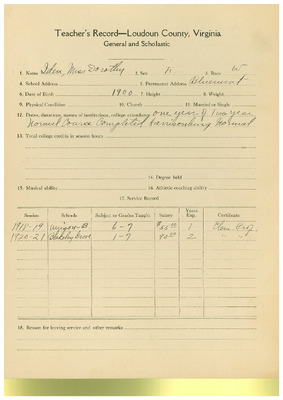 Teacher's Record—Loudoun County, Virginia
General and Scholastic
1. Name Iden, Miss Dorothy 2. Sex F. 3. Race W
4. School Address 5. Permanent Address Bluemont
6. Date of Birth 1900 7. Height 8. Weight
9. Physical Condition 10. Church 11. Married or Single
12. Dates, durations, names of institutions, college attendance one year of Two year
Normal Course Completed Harrisonburg Normal
13. Total college credits in session hours
14. Degree held
15. Musical ability 16. Athletic coaching ability
17. Service Record
Session Schools Subject or Grades Taught Salary Years Exp. Certificate
1918-19 6-7 1
1920-21 Grove 1-7 2 " "
18. Reason for leaving service and other remarks